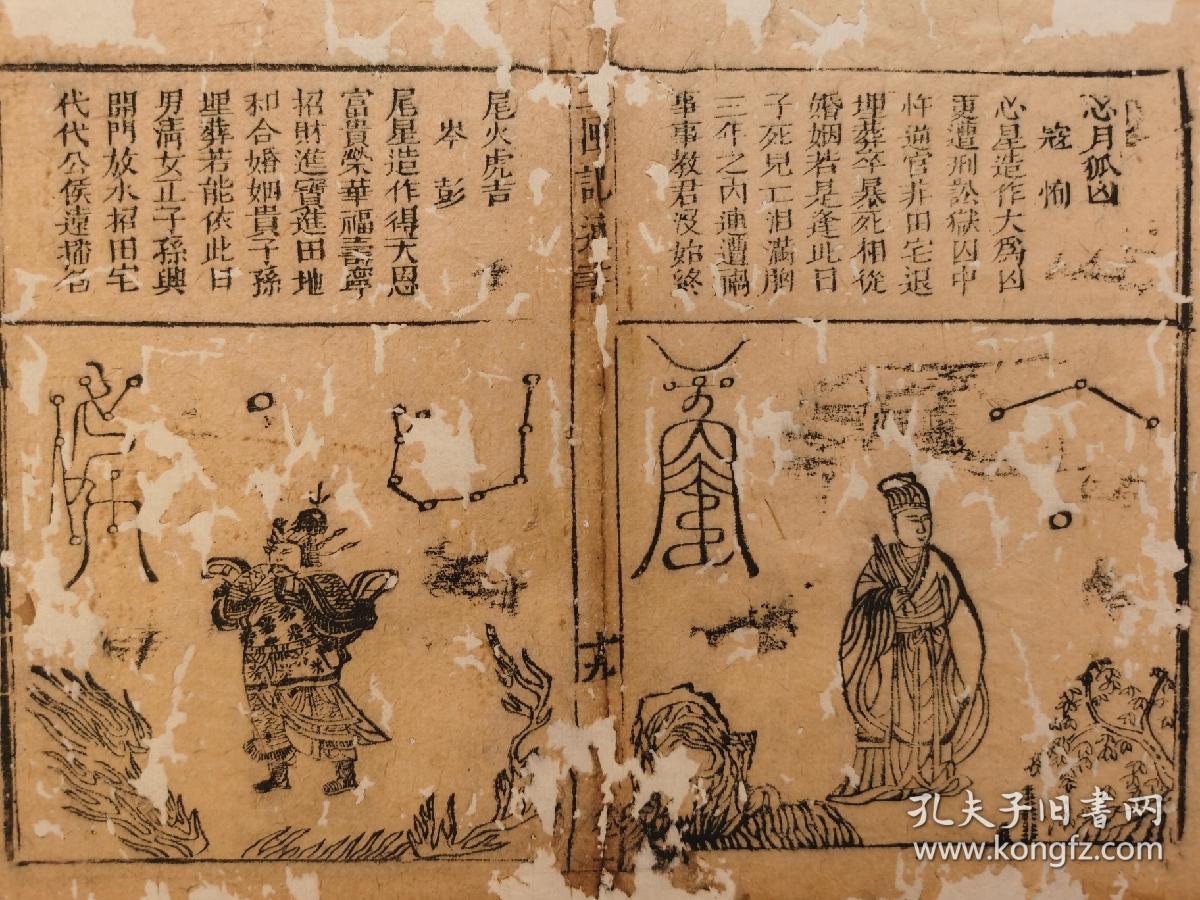 心月狐凶
寇恂
心星造作大爲凶
更遭刑訟獄囚中
忤逆官非田宅退
埋葬卒暴死相從
婚姻若是逢此日
子死兒亡泪滿胸
三年之內連遭禍
事事教君沒始終
十九
尾火虎吉
岑彭
尾星造作得天恩
富貴榮華福壽寧
招財進寶進田地
和合婚姻貴子孫
埋葬若能依此日
男清女正子孫興
開門放水招田宅
代代公侯遠播名
孔夫子旧書网
www.kongfz.com